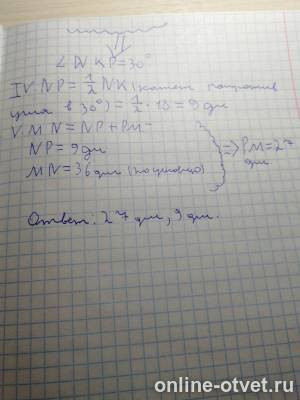 ∠PNKP=30°
IV. NP = 1/2 NK (катет напротив
угла в 30°) = 1/2 · 18 = 9 дм
V. MN = NP + PM -
NP = 9 дм => PM = 27 дм
MN = 36 дм (по условию)
Ответ: 27 дм, 9 дм.
online-otvet.ru